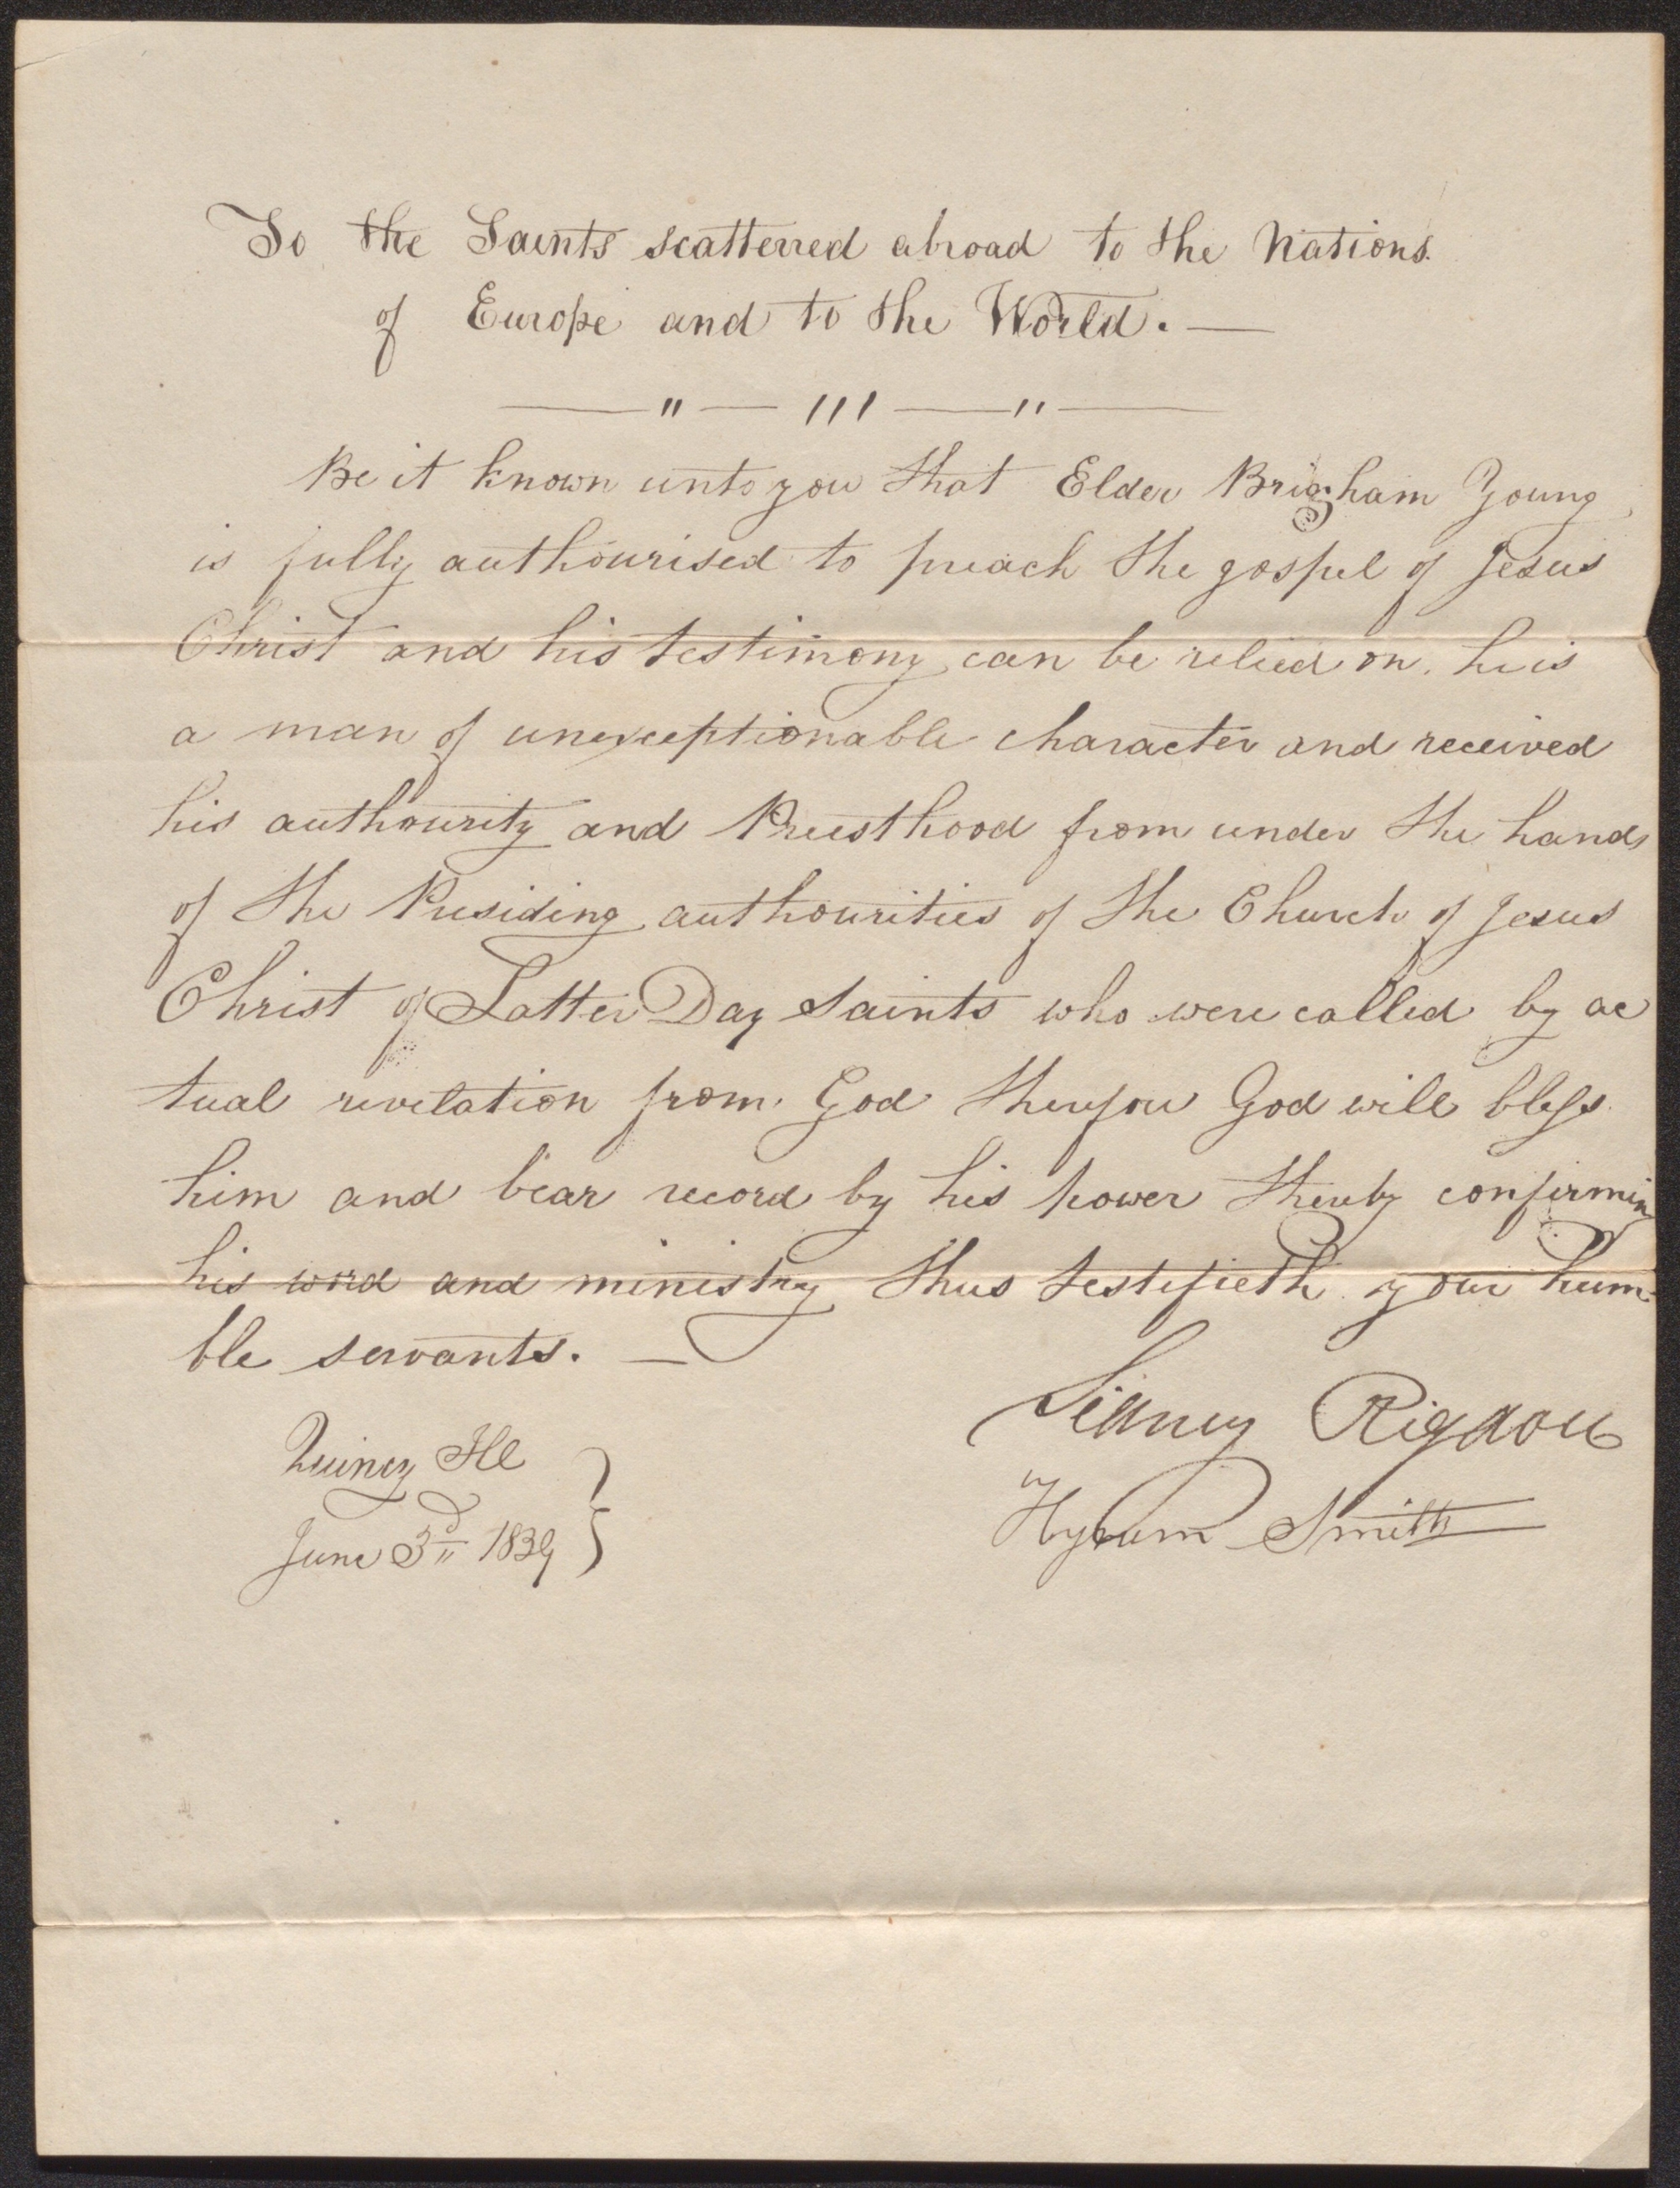 To the Saints scatterred abroad to the Nations.
of Europe and to the World. —
— " — ''' — " —
Be it known unto you that Elder Brigham Young
is fully authourised to preach the gospel of Jesus
Christ and his testimony can be relied on. he is
a man of unexceptionable character and received
his authourity and Preesthood from under the hands
of the Presiding authourities of the Church of Jesus
Christ of Latter Day Saints who were called by ac
tual revelation from. God therefore God will bless
him and bear record by his power thereby confirming
his word and ministry thus testifieth your hum-
ble servants. —
Sidney Rigdon
Hyrum Smith
Quincy Ill
June 3d 1839